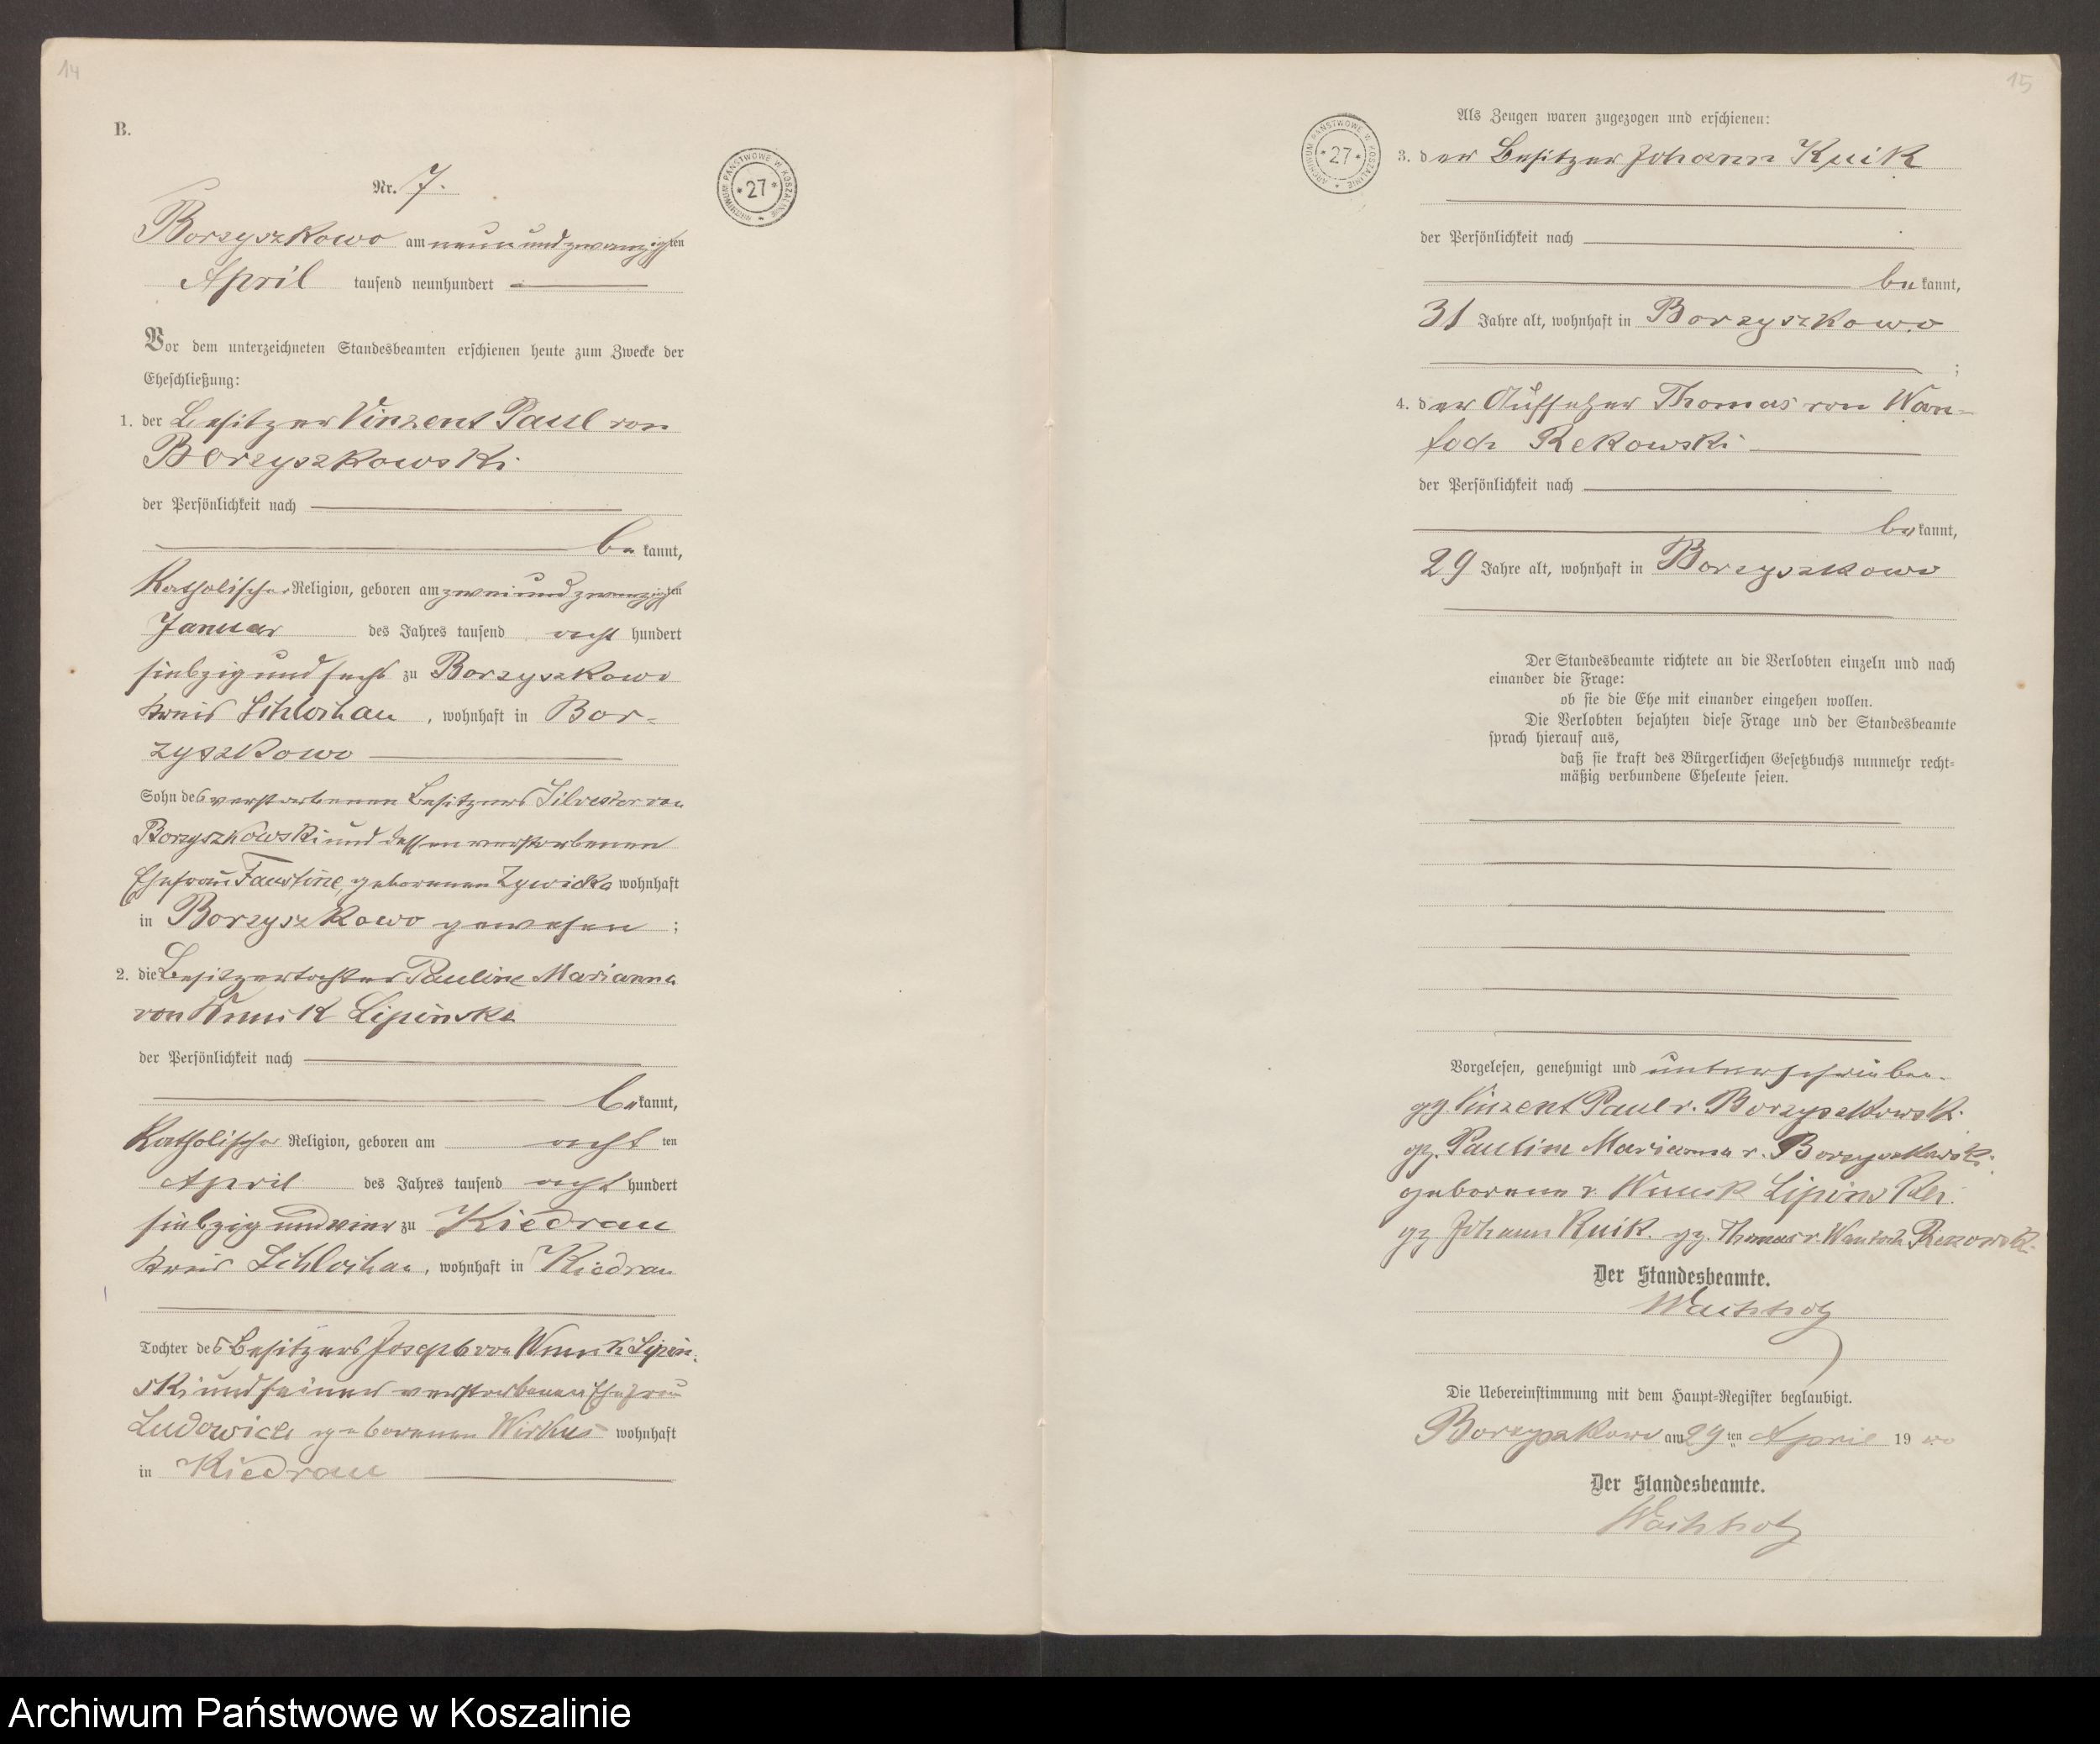 14
B.
Nr. 7.
ARCHIWUM PAŃSTWOWE W KOSZALINIE * 27 *
Borzyszkowo am neunundzwanzigsten
April tausend neunhundert
Vor dem unterzeichneten Standesbeamten erschienen heute zum Zwecke der
Eheschließung:
1. der Besitzer Vinzent Paul von
Borzyszkowski
der Persönlichkeit nach
bekannt,
Katholischer Religion, geboren am zweiundzwanzigsten
Januar des Jahres tausend acht hundert
siebzig und sechs zu Borzyszkowo
Kreis Schlochau, wohnhaft in Bor-
zyszkowo
Sohn des verstorbenen Besitzers Silvester von
Borzyszkowski und dessen verstorbenen
Ehefrau Faustine, geborenen Zywicka wohnhaft
in Borzyszkowo gewesen;
2. die Besitzertochter Pauline Marianna
von Wnuk Lipinska
der Persönlichkeit nach
bekannt,
Katholischer Religion, geboren am achtten
April des Jahres tausend acht hundert
siebzig und vier zu Kiedrau
Kreis Schlochau, wohnhaft in Kiedrau
Tochter des Besitzers Joseph von Wnuk Lipin-
ski und seiner verstorbenen Ehefrau
Ludowica geborenen Wirkus wohnhaft
in Kiedrau
15
ARCHIWUM PAŃSTWOWE W KOSZALINIE * 27 *
Als Zeugen waren zugezogen und erschienen:
3. der Besitzer Johann Kuik
der Persönlichkeit nach
bekannt,
31 Jahre alt, wohnhaft in Borzyszkowo
;
4. der Aufseher Thomas von Wan-
toch Rekowski
der Persönlichkeit nach
bekannt,
29 Jahre alt, wohnhaft in Borzyszkowo
Der Standesbeamte richtete an die Verlobten einzeln und nach
einander die Frage:
ob sie die Ehe mit einander eingehen wollen.
Die Verlobten bejahten diese Frage und der Standesbeamte
sprach hierauf aus,
daß sie kraft des Bürgerlichen Gesetzbuchs nunmehr recht-
mäßig verbundene Eheleute seien.
Vorgelesen, genehmigt und unterschrieben.
gz. Vinzent Paul v. Borzyszkowski.
gz. Pauline Marianna v. Borzyszkowski.
geborene v Wnuk Lipinski.
gz. Johann Kuik. gz. Thomas v. Wantoch Rekowski.
Der Standesbeamte.
Wachholz
Die Uebereinstimmung mit dem Haupt-Register beglaubigt.
Borzyszkowo am 29ten April 19 00
Der Standesbeamte.
Wachholz
Archiwum Państwowe w Koszalinie